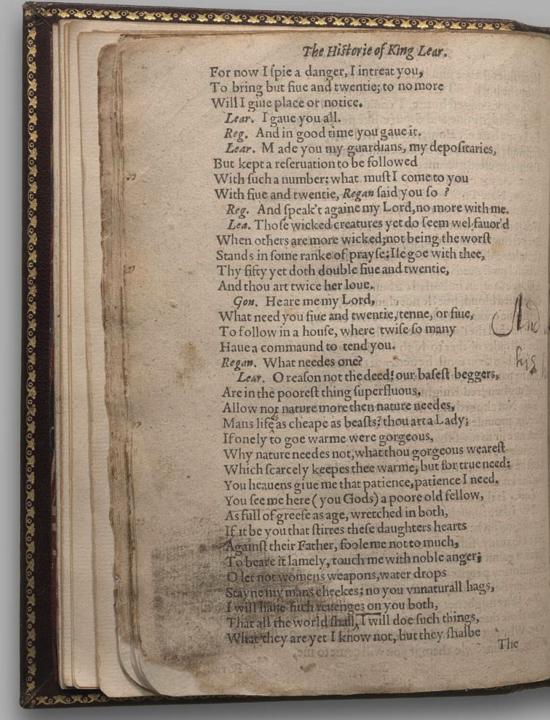 The Historie of King Lear.
For now I ſpie a danger, I intreat you,
To bring but fiue and twentie; to no more
Will I giue place or notice.
Lear. I gaue you all.
Reg. And in good time you gaue it.
Lear. M ade you my guardians, my depoſitaries,
But kept a reſeruation to be followed
With ſuch a number: what muſt I come to you
With fiue and twentie, Regan ſaid you ſo ?
Reg. And ſpeak't againe my Lord, no more with me.
Lea. Thoſe wicked creatures yet do ſeem wel-fauor'd
When others are more wicked, not being the worſt
Stands in ſome ranke of prayſe; Ile goe with thee,
Thy fifty yet doth double fiue and twentie,
And thou art twice her loue.
Gon. Heare me my Lord,
What need you fiue and twentie, tenne, or fiue,
To follow in a houſe, where twiſe ſo many
Haue a commaund to tend you.
Regan. What needes one?
Lear. O reaſon not the deed! our baſeſt beggers,
Are in the pooreſt thing ſuperfluous,
Allow not nature more then nature needes,
Mans life as cheape as beaſts? thou art a Lady;
If onely to goe warme were gorgeous,
Why nature needes not, what thou gorgeous weareſt
Which ſcarcely keepes thee warme, but for true need:
You heauens giue me that patience, patience I need,
You ſee me here ( you Gods) a poore old fellow,
As full of greefe as age, wretched in both,
If it be you that ſtirres theſe daughters hearts
Againſt their Father, foole me not to much,
To beare it lamely, touch me with noble anger;
O let not womens weapons, water drops
Stayne my mans cheekes; no you vnnaturall hags,
I will haue ſuch reuenges on you both,
That all the world ſhall, I will doe ſuch things,
What they are yet I know not, but they ſhalbe
The
his